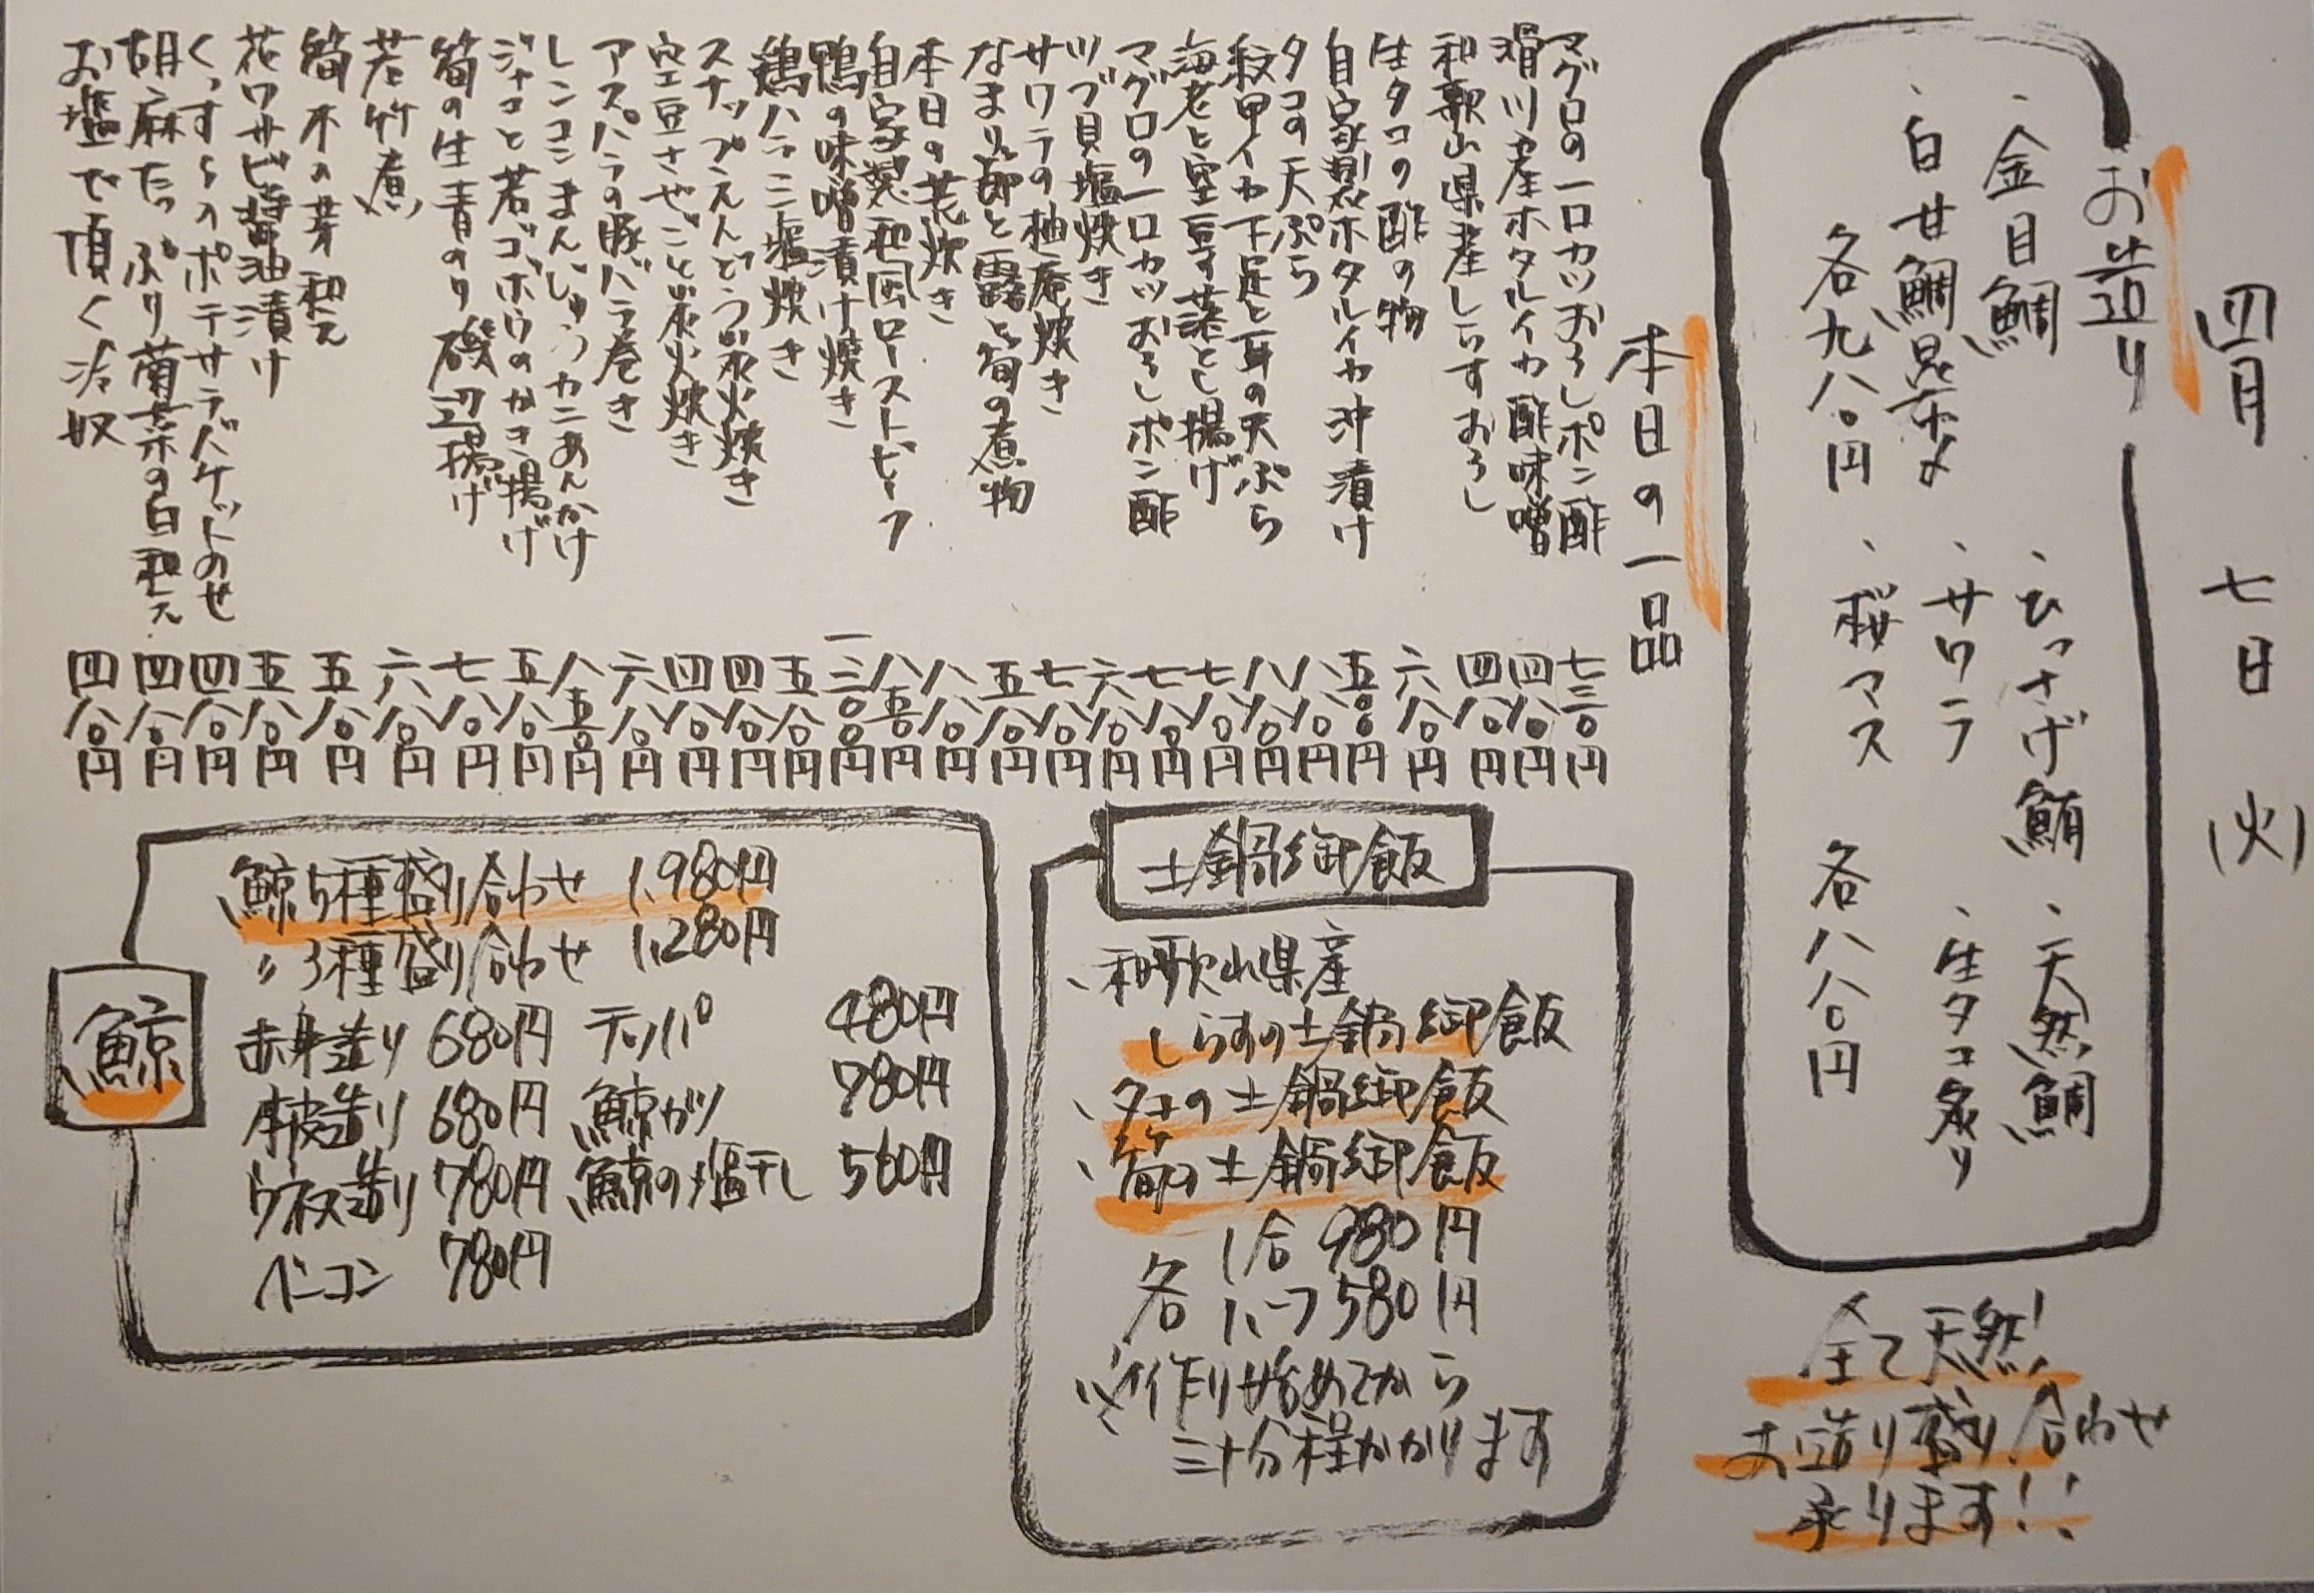 四月 七日 (火)
お造り
、金目鯛 、ひっさげ鮪 、天然鯛
、白甘鯛昆布〆 、サワラ 、生タコ炙り
各九八〇円 、桜マス 各八八〇円
全て天然!
お造り盛り合わせ
承ります!!
本日の一品
マグロの一口カツおろしポン酢 七三〇円
滑川産ホタルイカ酢味噌 四八〇円
和歌山県産しらすおろし 四八〇円
生タコの酢の物 六八〇円
自家製ホタルイカ沖漬け 五〇〇円
タコの天ぷら 八八〇円
紋甲イカ下足と耳の天ぷら 八八〇円
海老と空豆の落とし揚げ 七八〇円
マグロの一口カツおろしポン酢 七八〇円
ツブ貝塩焼き 六八〇円
サワラの柚庵焼き 七八〇円
なまり節と蕗と筍の煮物 五八〇円
本日の荒炊き 八八〇円
自家製和風ローストビーフ 八五〇円
鴨の味噌漬け焼き 一三〇〇円
鶏ハラミ塩焼き 五八〇円
スナップえんどう炭火焼き 四八〇円
空豆さやごと炭火焼き 四八〇円
アスパラの豚バラ巻き 六八〇円
レンコンまんじゅうカニあんかけ 八五〇円
ジャコと若ゴボウのかき揚げ 五八〇円
筍の生青のり磯辺揚げ 七八〇円
若竹煮 六八〇円
筍木の芽和え 五八〇円
花ワサビ醤油漬け 五八〇円
くずし〆ポテサラバケットのせ 四八〇円
胡麻たっぷり菊菜の白和え 四八〇円
お塩で頂く冷奴 四八〇円
土鍋御飯
、和歌山県産
しらすの土鍋御飯
、タコの土鍋御飯
、筍の土鍋御飯
各 1合 980円
ハーフ 580円
※作り始めてから
三十分程かかります
鯨
鯨5種盛り合わせ 1,980円
〃3種盛り合わせ 1,280円
赤身造り 680円 テッパ 480円
本皮造り 680円 鯨カツ 780円
ウネス造り 780円 鯨の塩干し 560円
ベーコン 780円